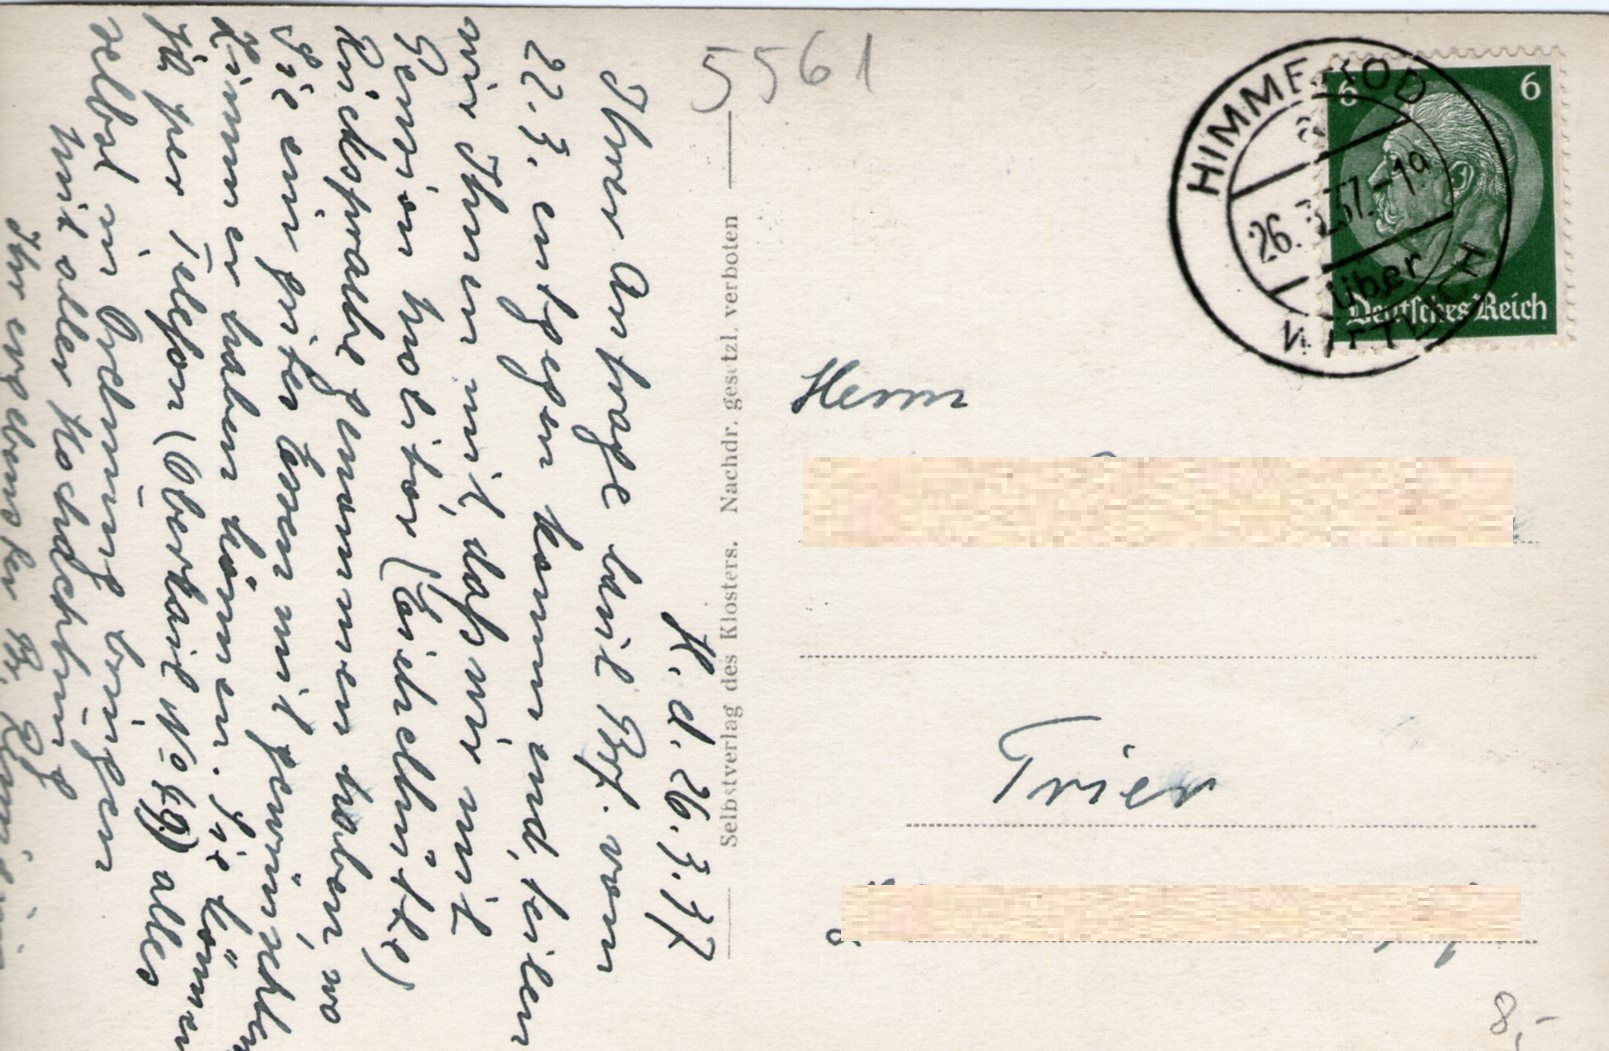 5561
H. d. 26.3.37
Ihrer Anfrage laut Brf. vom
22.3. entgegen kommend, teilen
wir Ihnen mit, daß wir mit
Pension Molitor (Eichelhütte)
Rücksprache genommen haben, wo
Sie ein gutes Essen mit gewünschten
Zimmer haben können. Sie können
ja per Telefon (Oberkail No 69) alles
selbst in Ordnung bringen
Mit aller Hochachtung
Ihr ergebenster Br.
Selbstverlag des Klosters. Nachdr. gesetzl. verboten
HIMMEROD
a
26.3.37.-19
über
WITTLICH
6 6
Deutsches Reich
Herrn
Trier
8,-